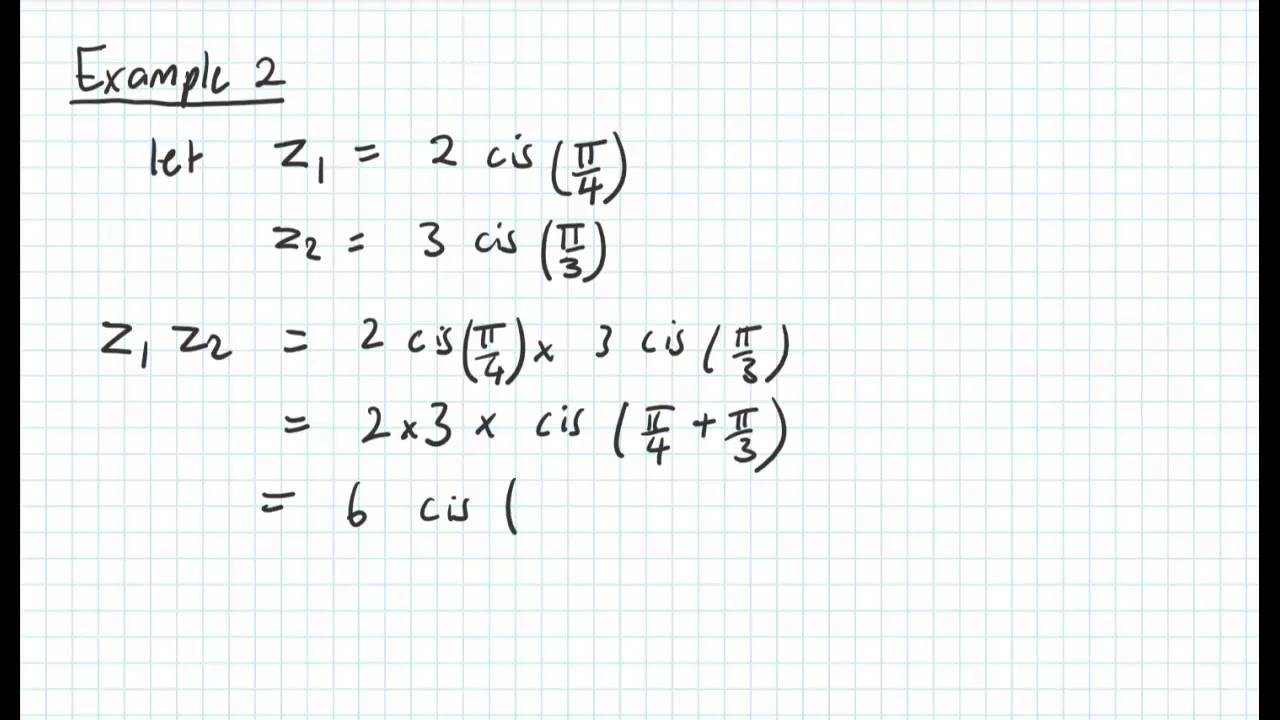 Example 2
let z₁ = 2 cis (π/4)
z₂ = 3 cis (π/3)
z₁ z₂ = 2 cis(π/4) × 3 cis (π/3)
= 2 × 3 × cis (π/4 + π/3)
= 6 cis (